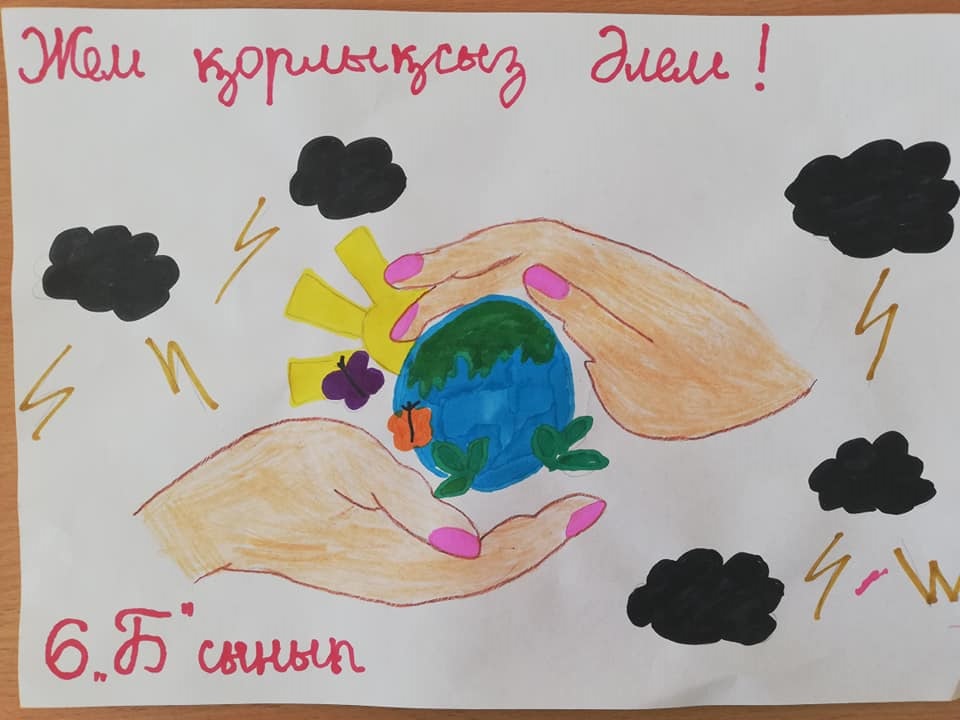 Жем қорлықсыз Әлем!
6 „Б" сынып